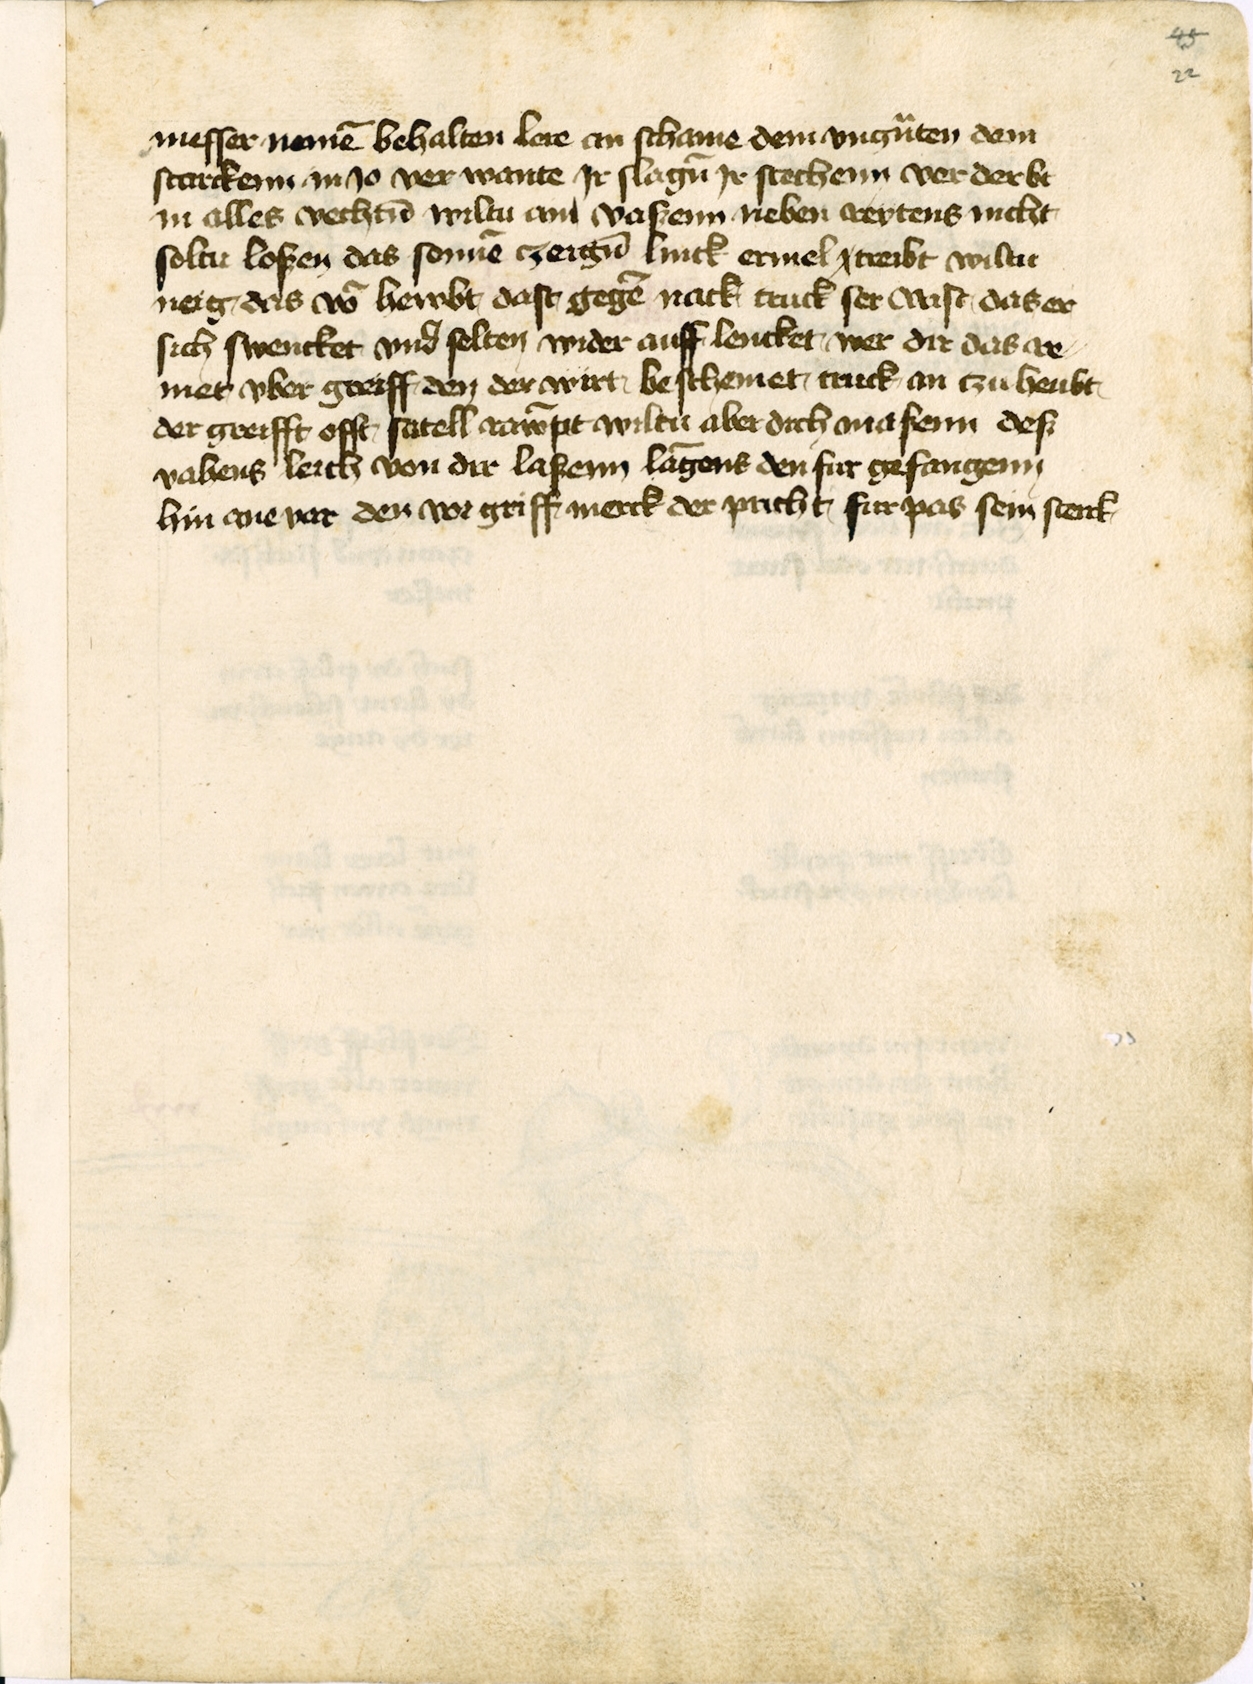 45
22
messer nemē behalten lere an schame dem vngūten dem
starckenn in Jo ver wante Jr slagū Jr stechenn ver derbt
in alles vechtū wiltu am vaßenn neben reytens nicht
soltu loßen das sonnē czeigū linck ermel treibt wiltu
neig das vō hewbt dast gegē nack truck ser rast das er
sich swencket vnd selten wider auff lencket wer dir das re
met vber greiff den der wirt beschemet truck an czu heubt
der greifft offt satell rawpt wiltu aber dich maßenn deß
vahens leich von dir laßenn lāgens den fur gefangenn
hin ane var den vor griff merck der pricht furpas sein sterck